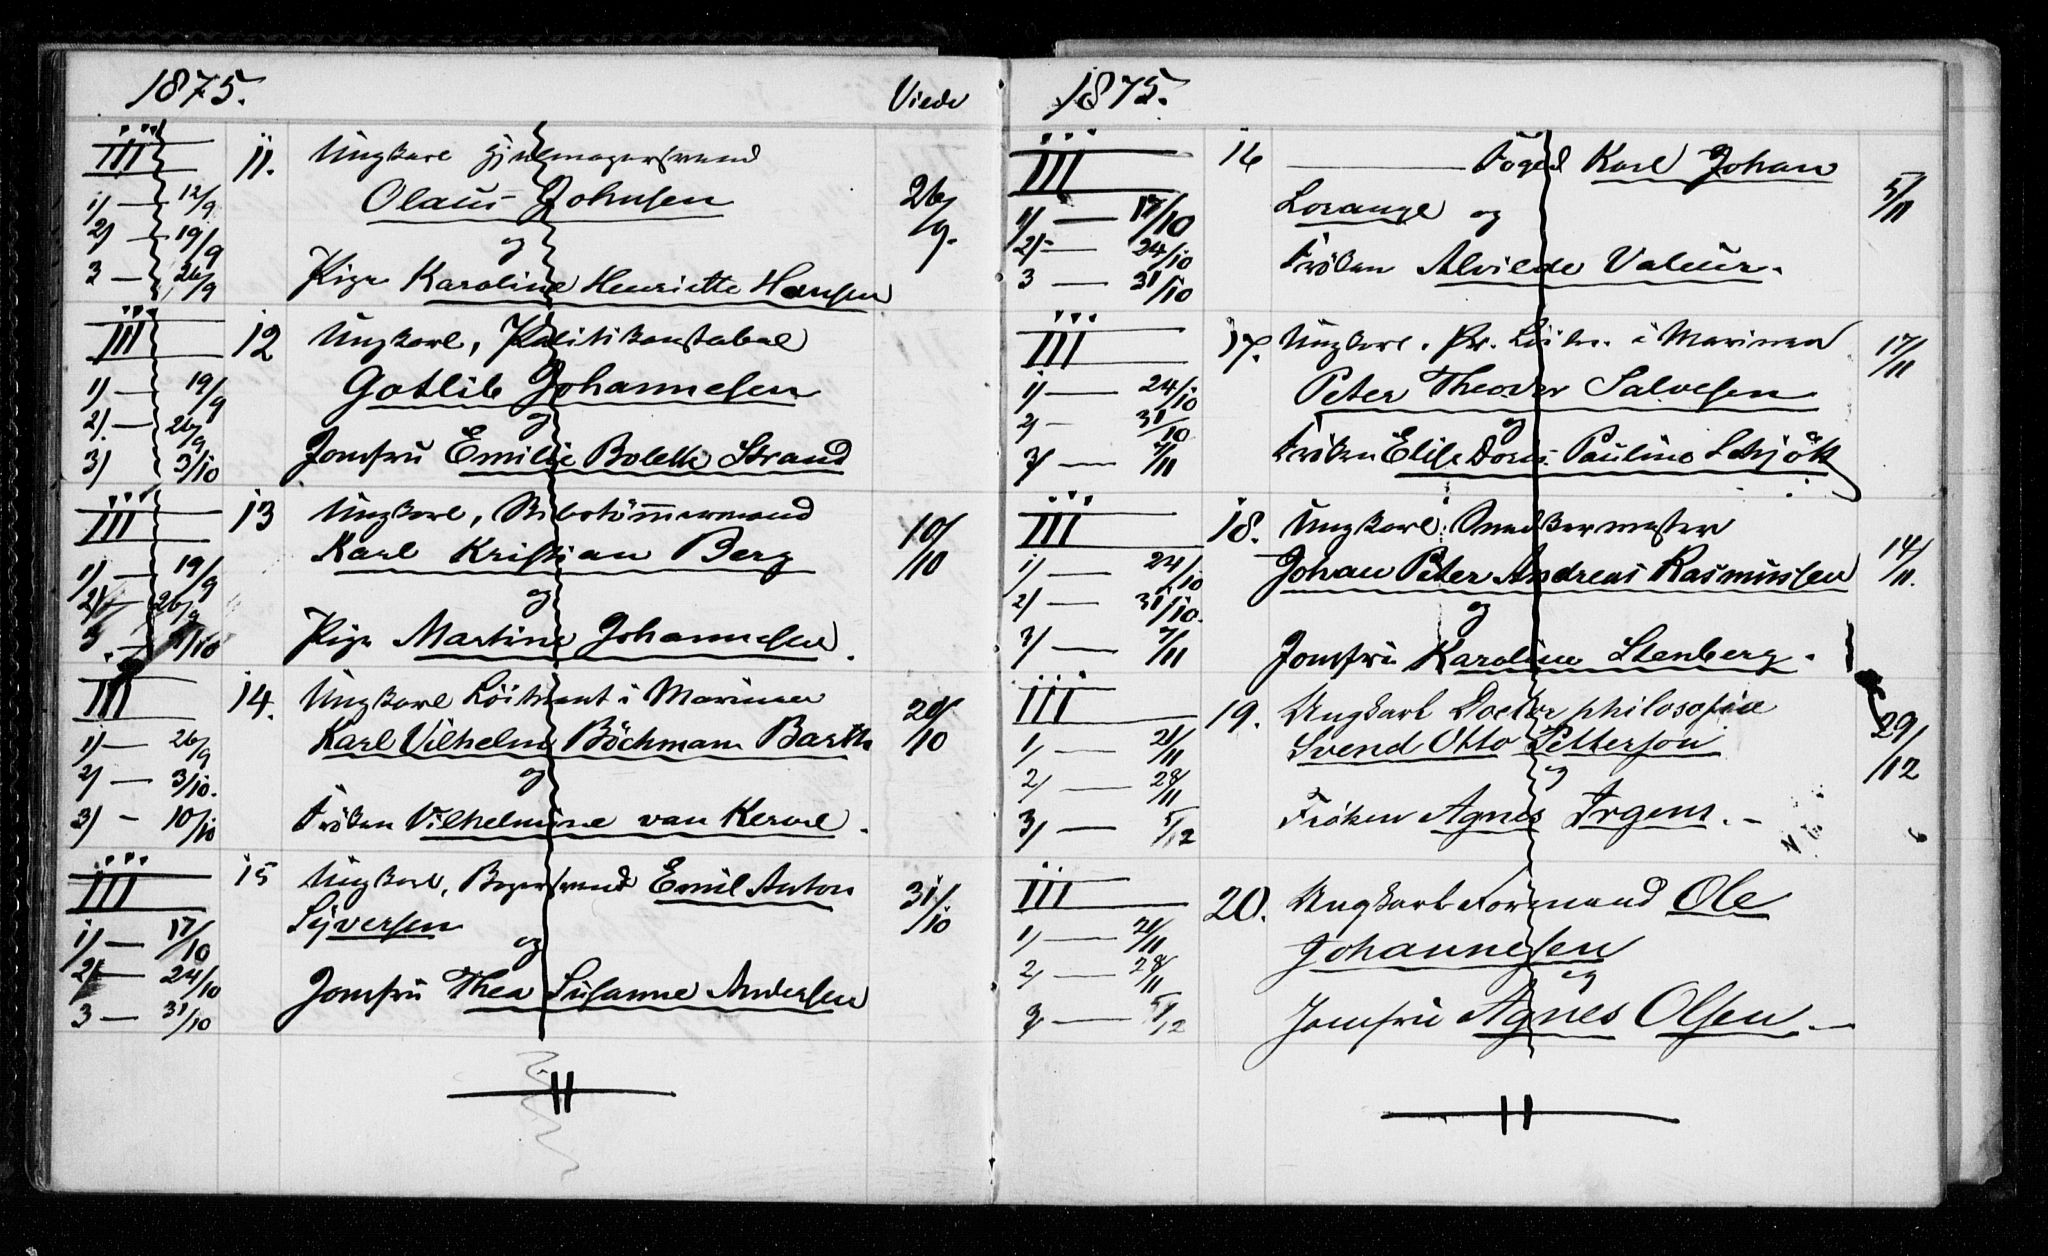 1875. Viede
III 11. Ungkarl Hjulmagersvend
1) — 12/9 Olaus Johnsen 26/9.
2) — 19/9 og
3 — 26/9 Pige Karoline Henriette Hansen
III 12 Ungkarl, Politikonstabel
1) — 19/9 Gotlib Johannesen
2) — 26/9 og
3) 3/10 Jomfru Emilie Bolette Strand
III 13 Ungkarl,
Karl Kristian Berg 10/10
1) — 19/9
2) — 26/9 og
3 — /10 Pige Martine Johannesen.
III 14. Ungkarl Löitnant i Marinen
1) — 26/9 Karl Vilhelm Böchman Barth 20/10
2) — 3/10. og
3) — 10/10 Fröken Vilhelmine van Kervel.
III 15 Ungkarl, Bagersvend Emil Anton
1) — 17/10 Syversen 31/10
2) — 24/10 og
3 — 31/10 Jomfru Thea Susanne Andersen
1875.
III 16 — Foged Karl Johan
1) — 17/10 Lorange og 5/11
2) — 24/10
3 — 31/10 Fröken Alvilde Valeur.
III 17. Ungkarl. Pr. Löitn. i Marinen 17/11
1) — 24/10 Peter Theodor Salvesen
2) — 31/10 og
3) — 7/11 Fröken Elise Doris Pauline Schjött
III 18. Ungkarl. Snedkermester
1) — 24/10 Johan Peter Andreas Rasmussen 14/11.
2) — 31/10. og
3) — 7/11 Jomfru Karoline Stenberg.
III 19. Ungkarl Doctor philosofiæ
1) — 21/11 Svend Otto Petterson 29/12
2) — 28/11 og
3) — 5/12 Frøken Agnes Irgens. —
III 20. Ungkarl Formand Ole
1) — 21/11 Johannesen
2) — 28/11 og
3) — 5/12 Jomfru Agnes Olsen. —